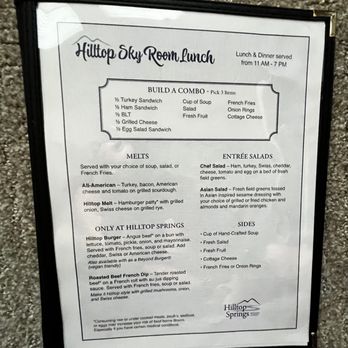 Hilltop Sky Room Lunch
Lunch & Dinner served
from 11 AM - 7 PM
BUILD A COMBO - Pick 3 Items
½ Turkey Sandwich
½ Ham Sandwich
½ BLT
½ Grilled Cheese
½ Egg Salad Sandwich
Cup of Soup
Salad
Fresh Fruit
French Fries
Onion Rings
Cottage Cheese
MELTS
Served with your choice of soup, salad, or
French Fries.
All-American - Turkey, bacon, American
cheese and tomato on grilled sourdough.
Hilltop Melt - Hamburger patty* with grilled
onion, Swiss cheese on grilled rye.
ONLY AT HILLTOP SPRINGS
Hilltop Burger - Angus beef* on a bun with
lettuce, tomato, pickle, onion, and mayonnaise.
Served with French fries, soup or salad. Add
cheddar, Swiss or American cheese.
Also available with as a Beyond Burger®
(vegan friendly)
Roasted Beef French Dip - Tender roasted
beef* on a French roll with au jus dipping
sauce. Served with French fries, soup or salad
Make it Hilltop style with grilled mushrooms, onion,
and Swiss cheese.
ENTRÉE SALADS
Chef Salad - Ham, turkey, Swiss, cheddar,
cheese, tomato and egg on a bed of fresh
field greens.
Asian Salad - Fresh field greens tossed
in Asian inspired sesame dressing with
your choice of grilled or fried chicken and
almonds and mandarin oranges.
SIDES
• Cup of Hand-Crafted Soup
• Fresh Salad
• Fresh Fruit
• Cottage Cheese
• French Fries or Onion Rings
*Consuming raw or under cooked meats, shellfish,
or eggs may increase your risk of food borne illness,
Especially if you have certain medical conditions.
Hilltop
Springs